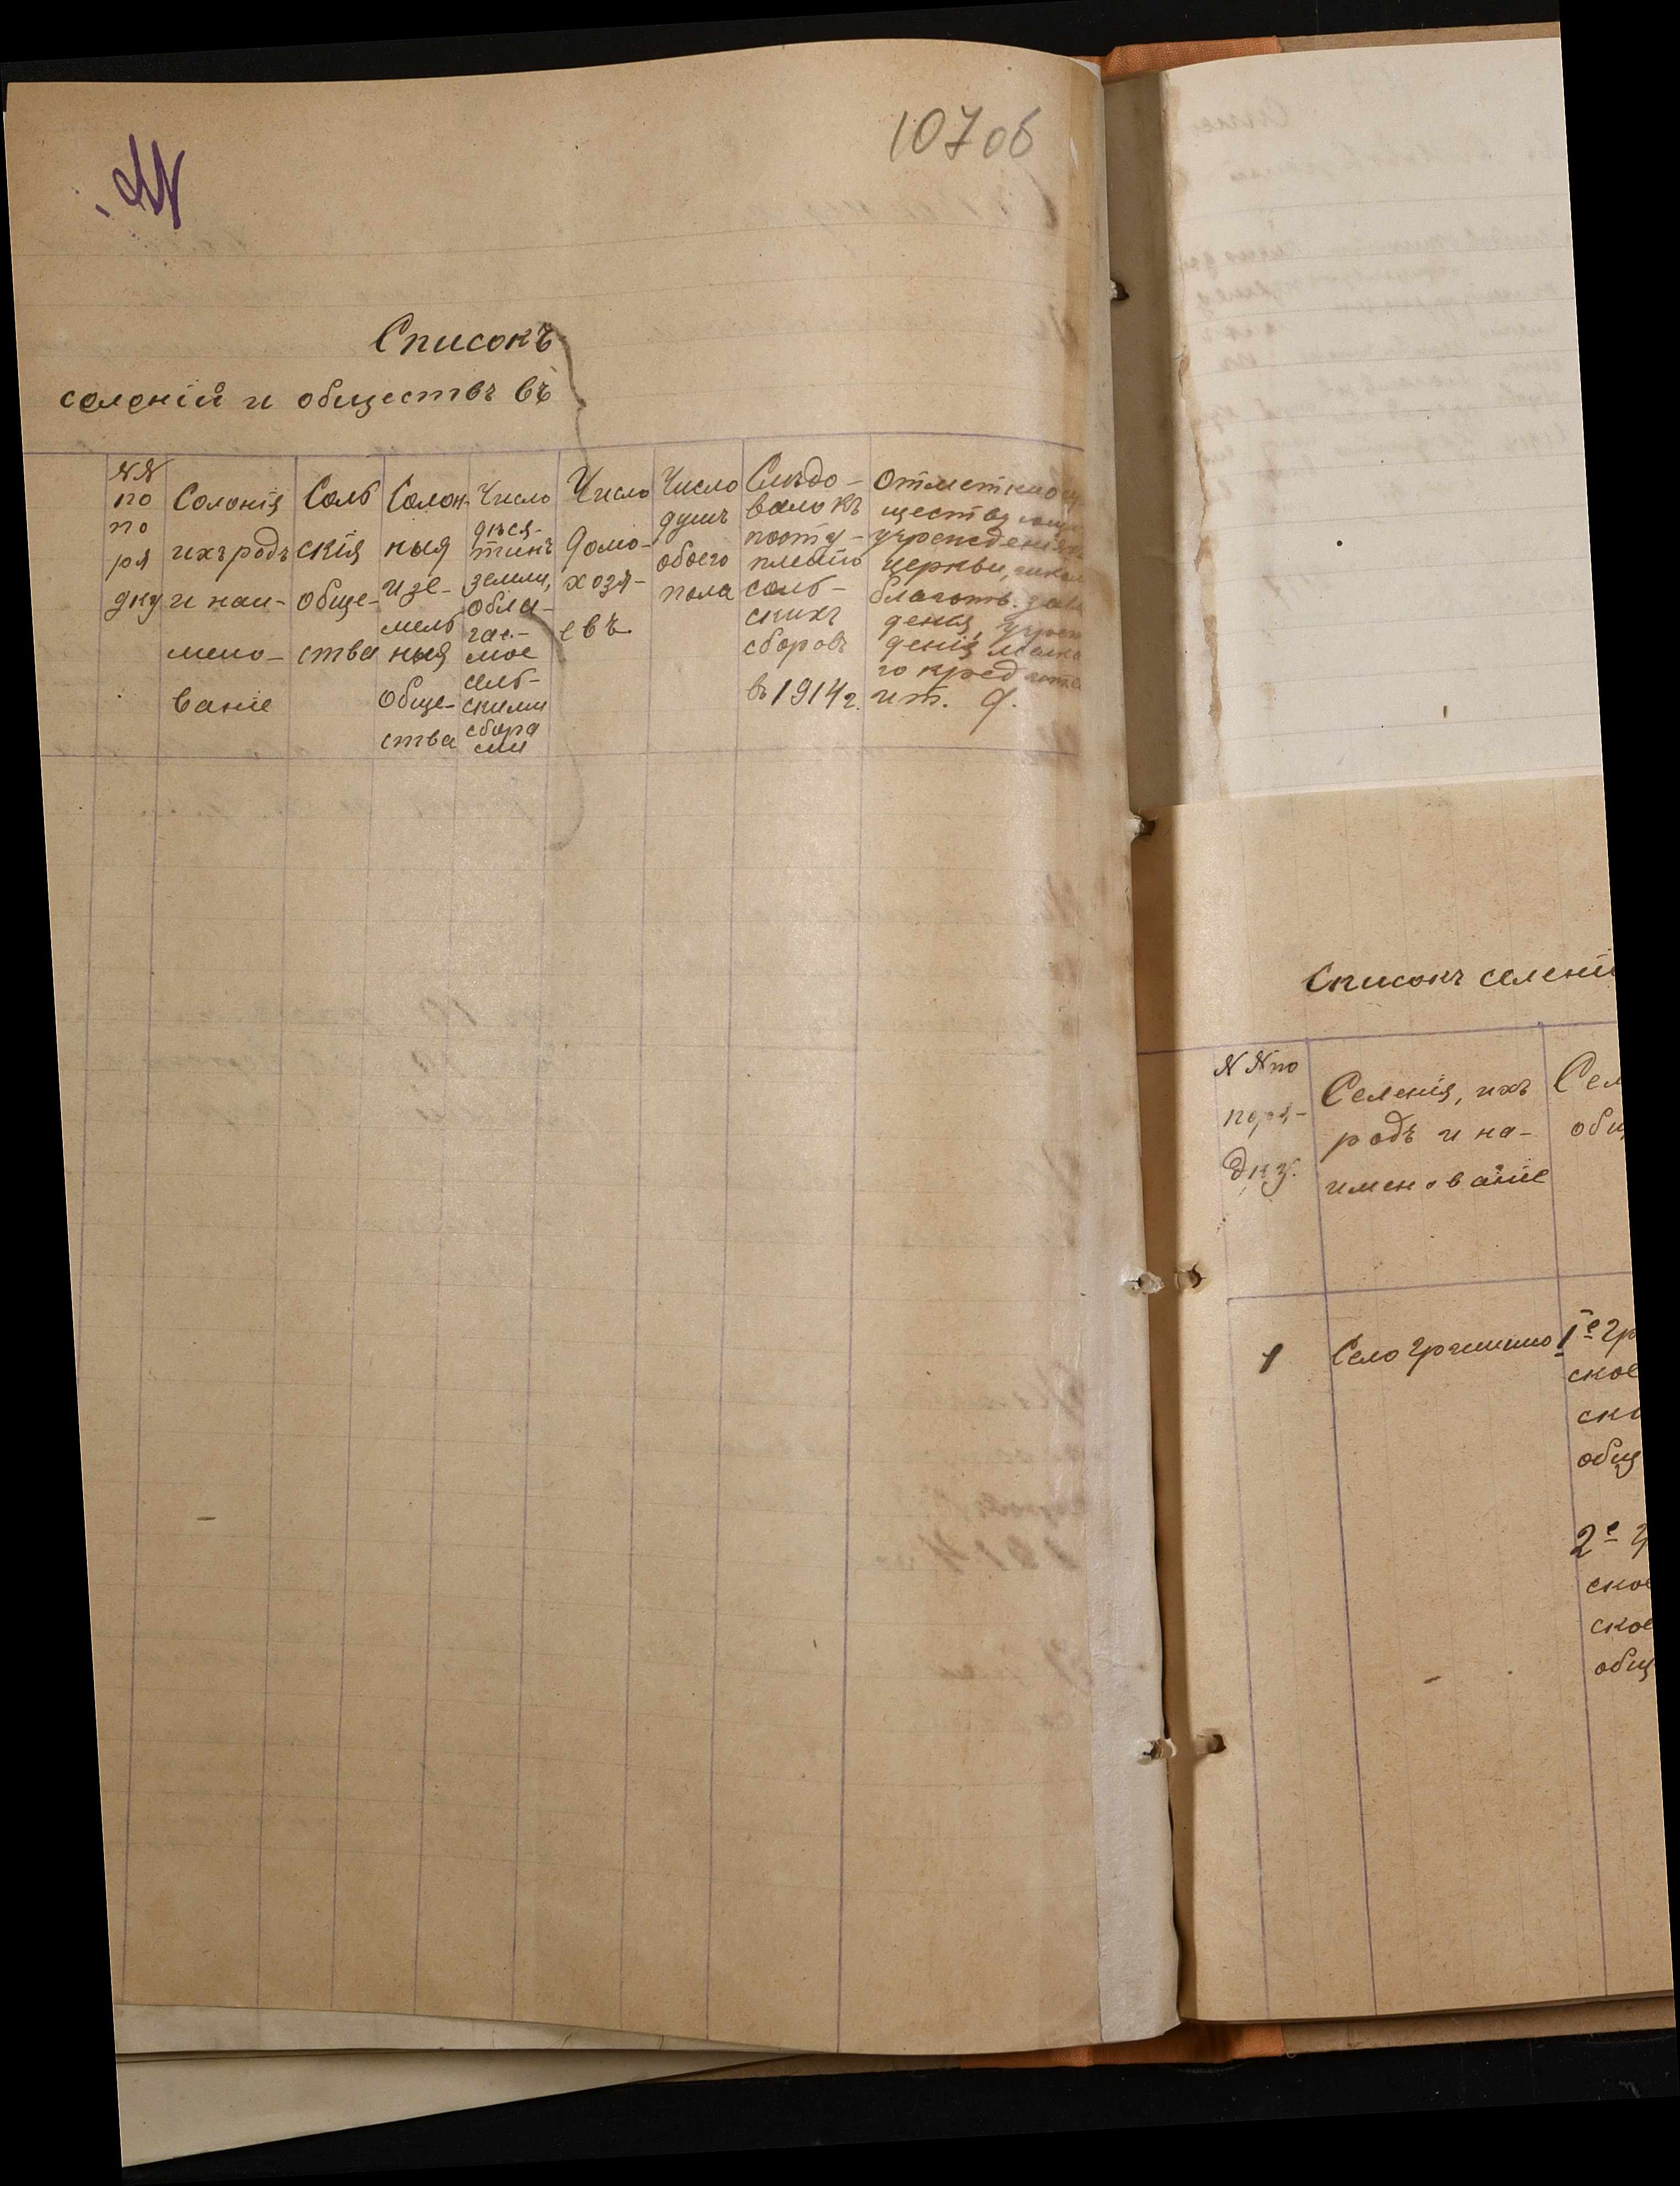 107 об
Списокъ
селеній и обществъ въ
№№
по
по
ря
дку
Селенія
ихъ родъ
и наи-
мено-
ваніе
Сель
скія
обще-
ства
Селен-
ныя
и зе-
мель
ныя
обще-
ства
Число
десят-
тинъ
земли,
обла-
гае-
мое
сель-
скими
сбора
ми
Число
домо-
хозя-
евъ
Число
душъ
обоего
пола
Слѣдо-
вало къ
посту-
пленію
сель-
скихъ
сборовъ
въ 1914 г.
Отметки о
ществ
учрежденія
церкви,
благотв. заве
денія, учреж
деній мелка
го кредита
и т. д.
Списокъ селені
№№ по
поря-
дку.
Селенія, ихъ
родъ и на-
именованіе
Сел
общ
1
Село Гришино
1е Гр
ское
ско
общ
2е Г
ское
ское
общ